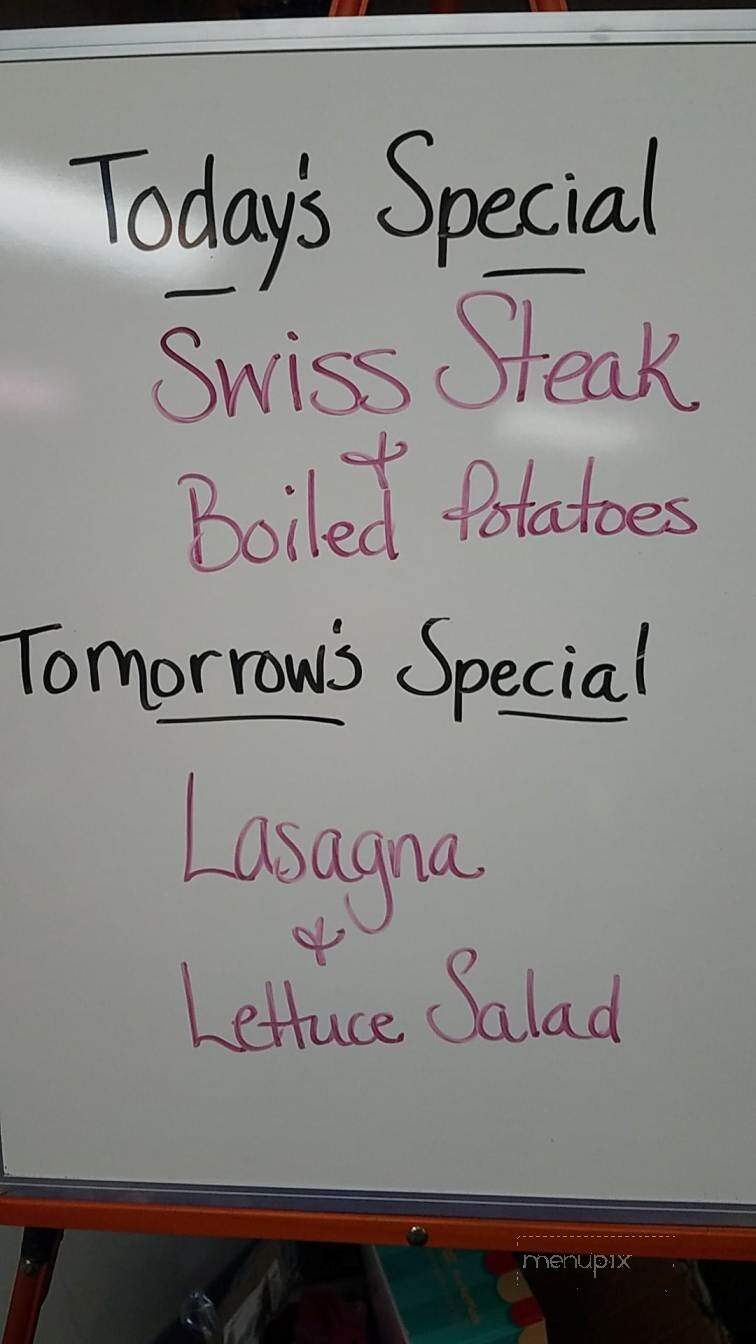 Today's Special
Swiss Steak
&
Boiled Potatoes
Tomorrow's Special
Lasagna
&
Lettuce Salad
menupix